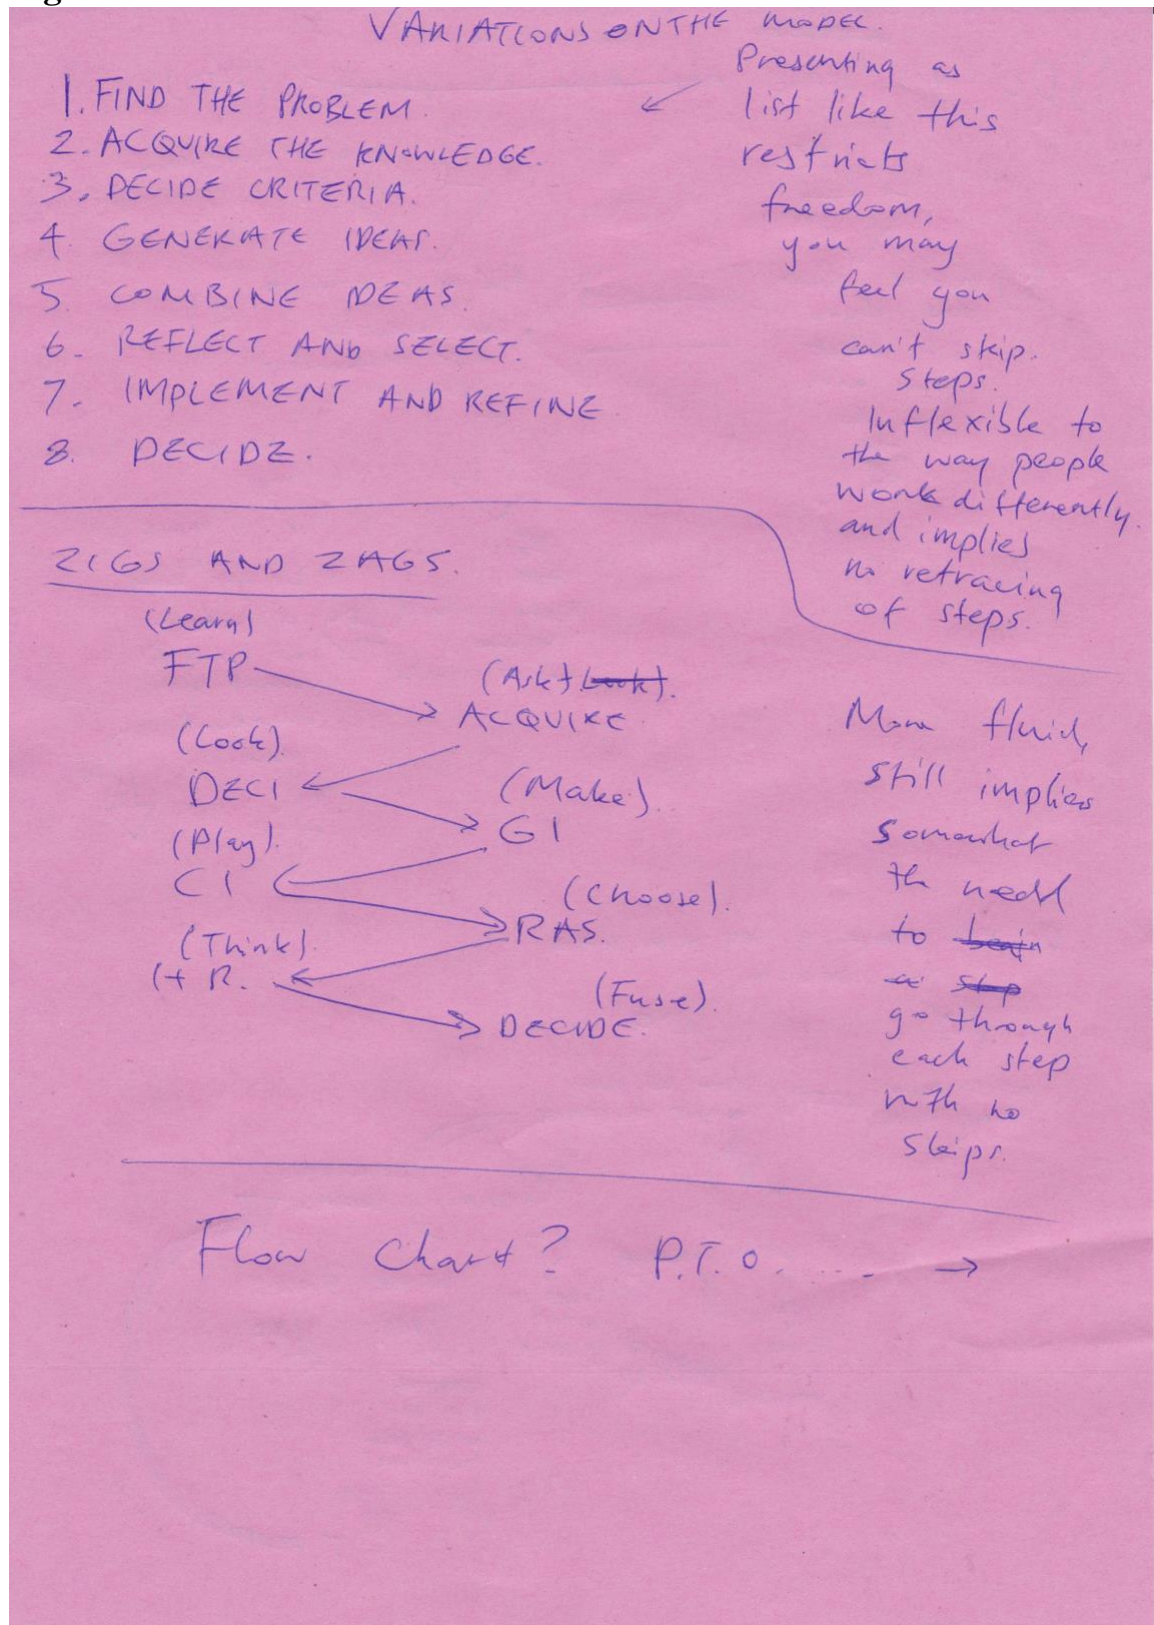 VARIATIONS ON THE MODEL.
1. FIND THE PROBLEM.
2. ACQUIRE THE KNOWLEDGE.
3. DECIDE CRITERIA.
4. GENERATE IDEAS.
5. COMBINE IDEAS.
6. REFLECT AND SELECT.
7. IMPLEMENT AND REFINE
8. DECIDE.
Presenting as
list like this
restricts
freedom,
you may
feel you
can't skip.
steps.
Inflexible to
the way people
work differently.
and implies
no retracing
of steps.
ZIGS AND ZAGS.
(Learn)
FTP
(Ask)
ACQUIRE
(Look).
DECI
(Make).
GI
(Play).
CI
(Choose).
RAS.
(Think)
I+R.
(Fuse).
DECIDE.
More fluid,
still implies
somewhat
the need
to
go through
each step
with no
skips.
Flow Chart? P.T.O. .... →